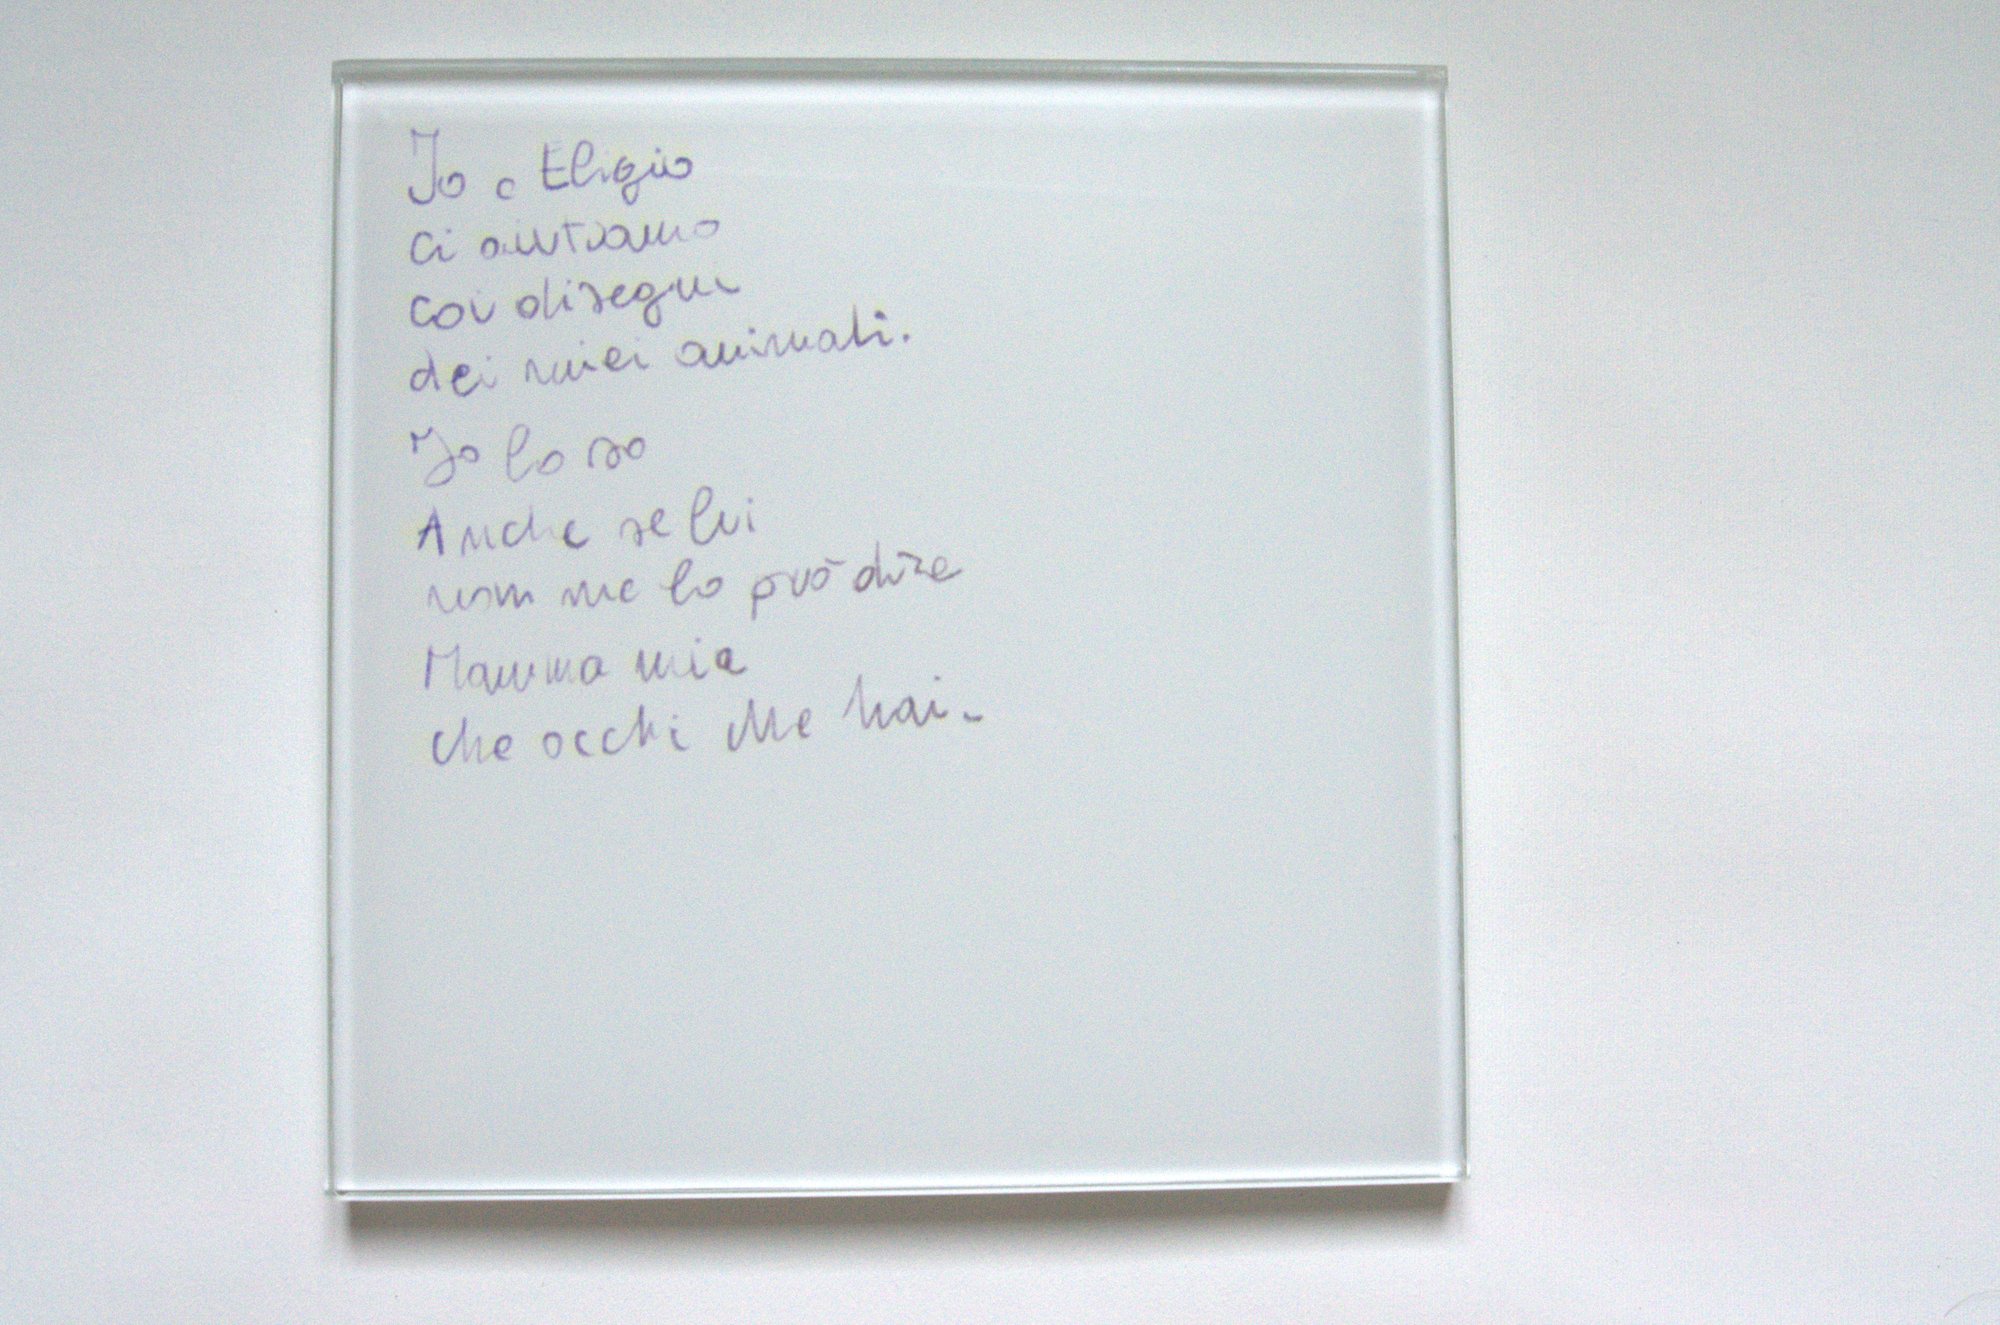 Io e Eligio
ci aiutiamo
coi disegni
dei miei animali.
Io lo so
Anche se lui
non me lo può dire
Mamma mia
che occhi che hai.